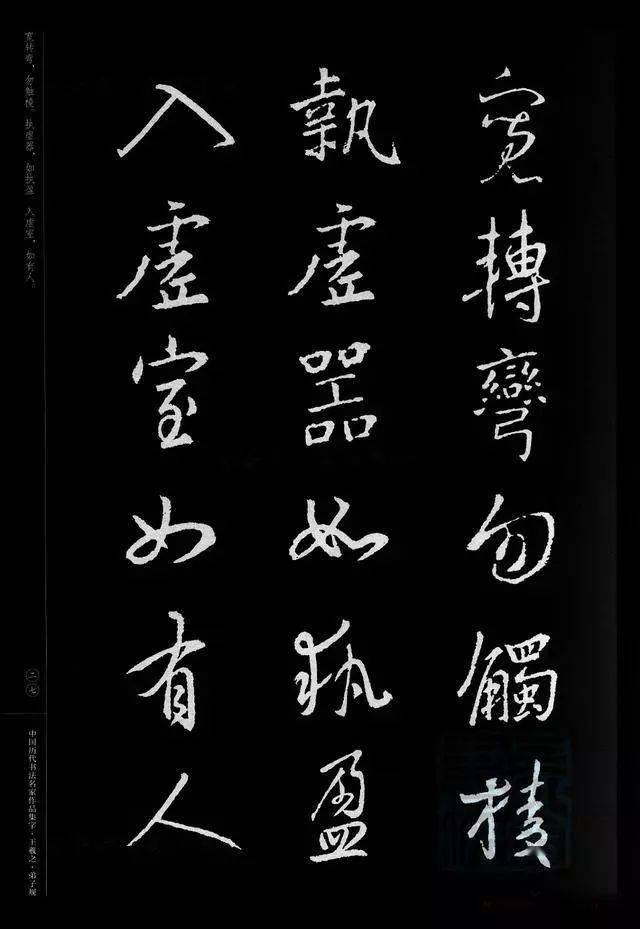 寬轉彎勿觸棱
執虛器如執盈
入虛室如有人
宽转弯，勿触棱。执虚器，如执盈 入虚室，如有人。
二七
中国历代书法名家作品集字·王羲之·弟子规